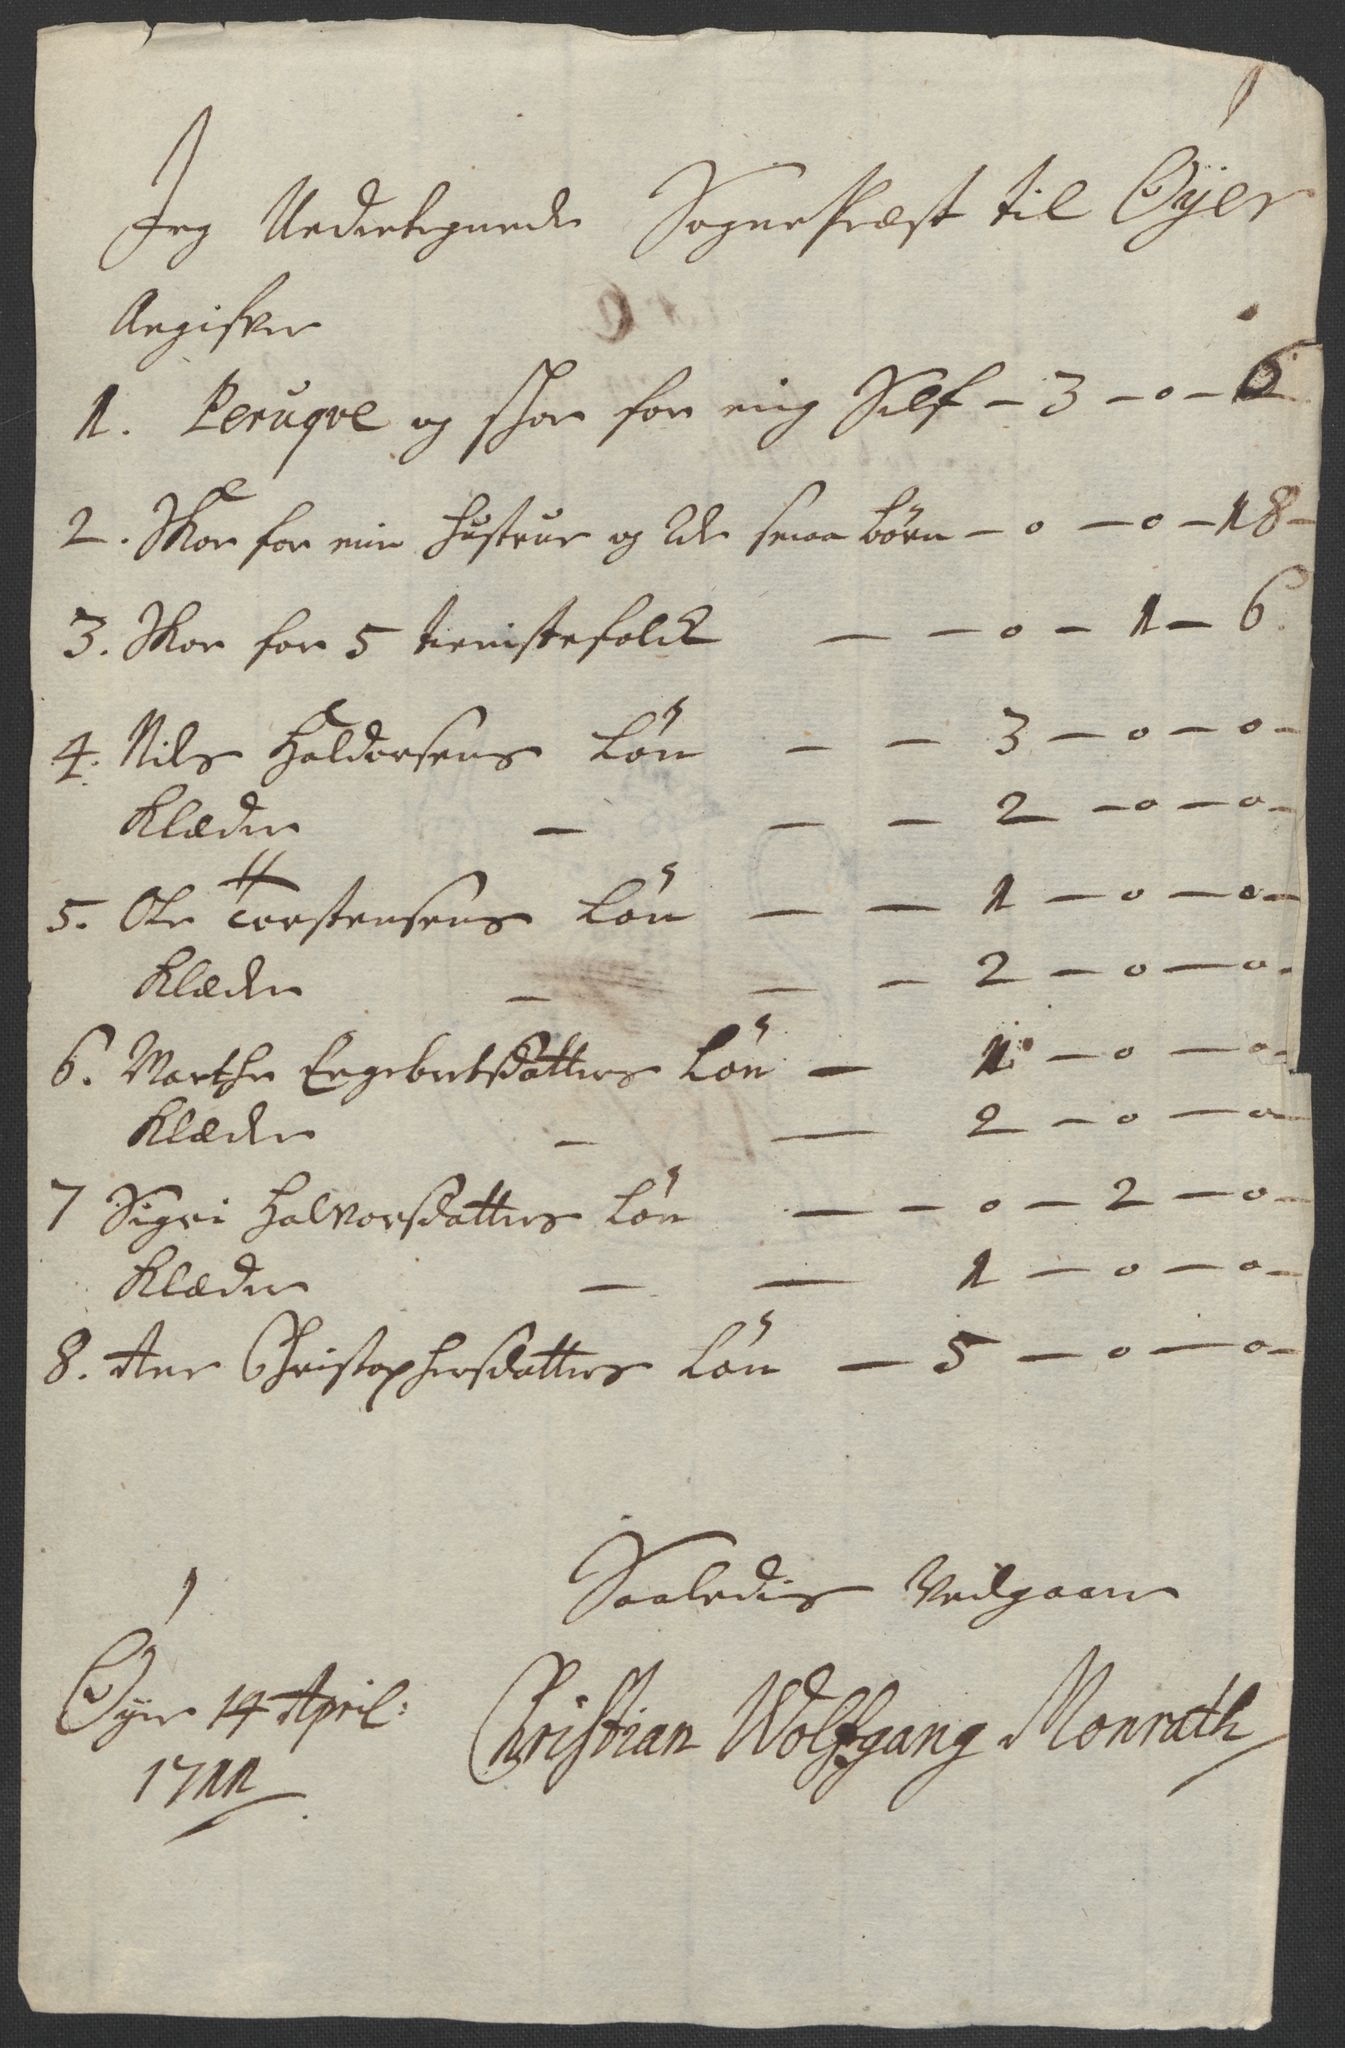 Jeg Undertegnede SognePræst til Øÿer
Angifver
1. Peruqve og skoe for mig Self – 3 – 0 –
2. Skoe for min hustrue og 2de smaa børn – 0 – 0 – 18 –
3. Skoe for 5 tienistefolck – – 0 – 1 – 6.
4. Nils Haldorsens Løn – – 3 – 0 – 0 –
Klæder – – – 2 – 0 – 0 –
5. Ole Torstensens Løn – – 1 – 0 – 0 –
Klæder – – – 2 – 0 – 0 –
6. Marthe Engebretsdatters Løn – 1 – 0 – 0 –
Klæder – – 2 – 0 – 0 –
7 Sigri Halvorsdatters Løn – – 0 – 2 – 0 –
Klæder – – 1 – 0 – 0 –
8. Ane Christophersdatters Løn – 5 – 0 – 0 –
Saaledis Vedgaaer
Øyer 14 April:
1711
Christian Wolfgang Monrath